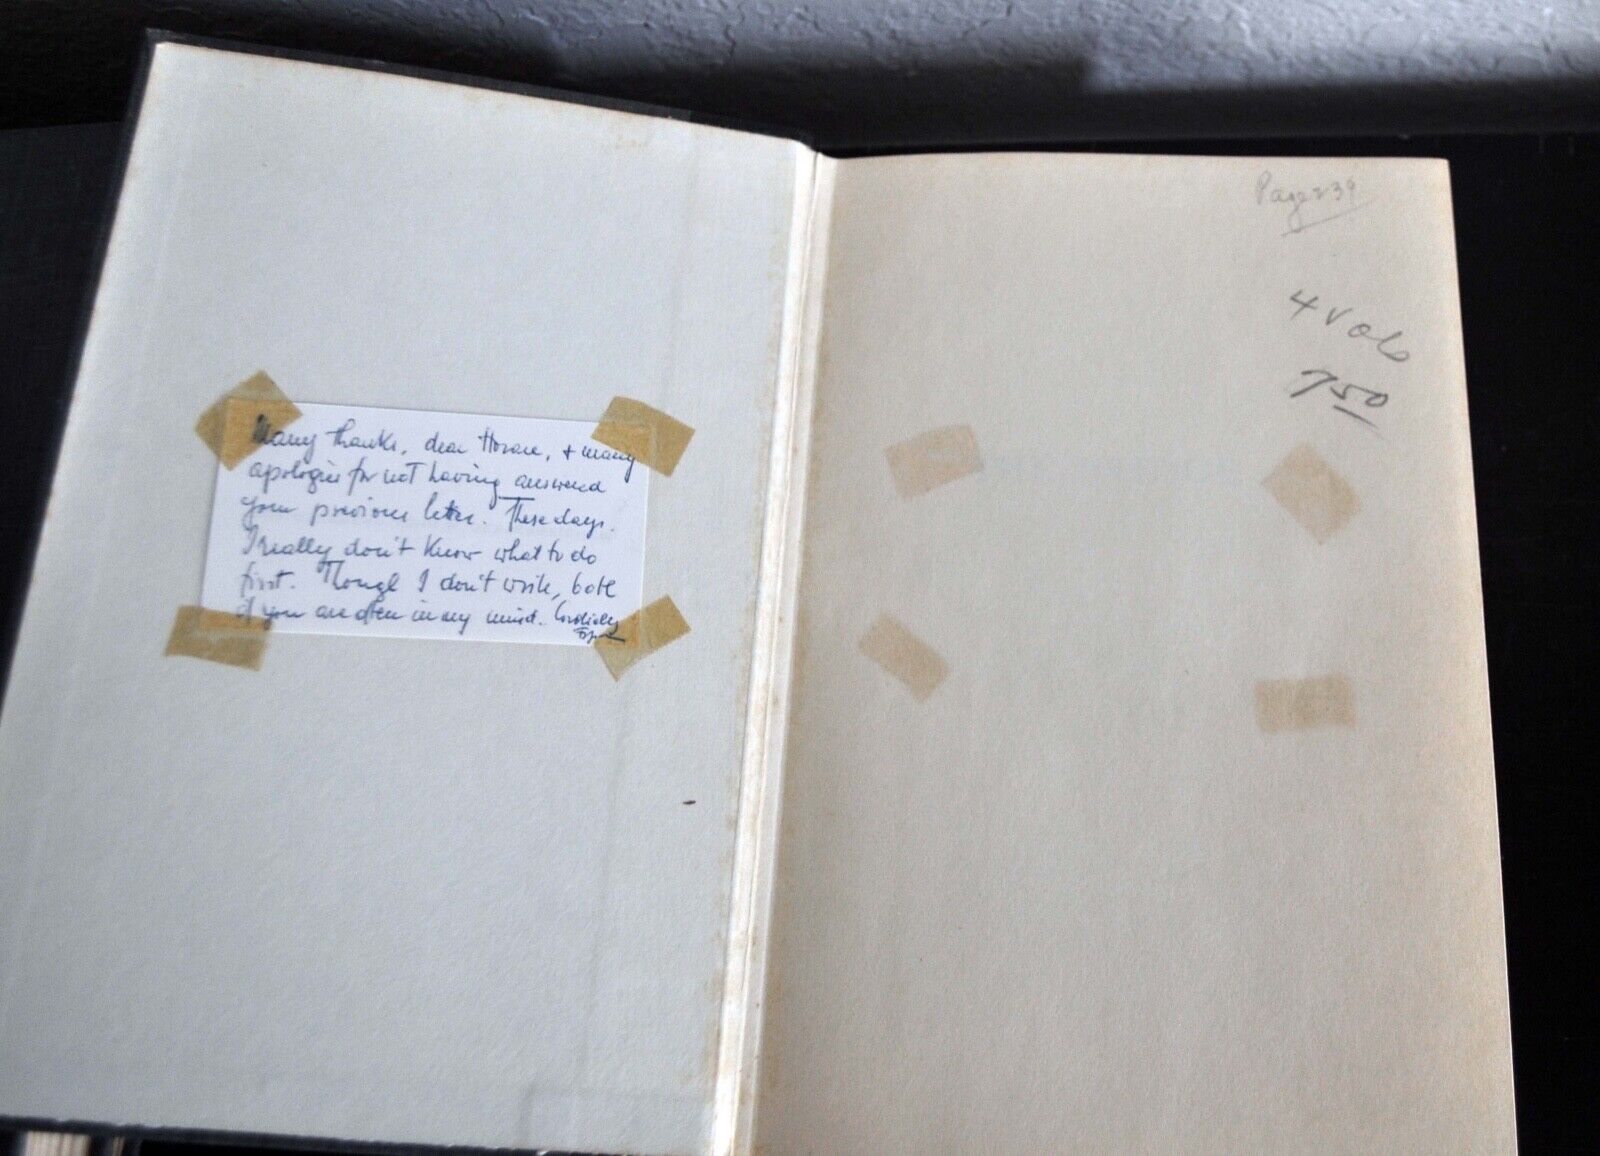 Many thanks, dear Horace, + many
apologies for not having answered
your previous letter. These days.
I really don't know what to do
first. Though I don't write, both
of you are often in my mind. Cordially
Page 239
4 vols
750